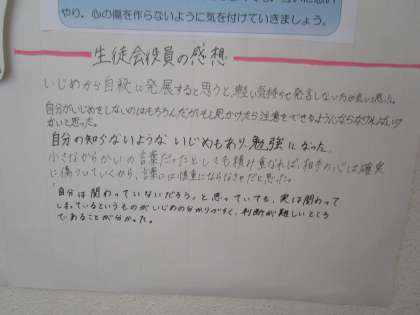 やり、心の傷を作らないように気を付けていきましょう。
生徒会役員の感想
いじめから自殺に発展すると思うと、軽い気持ちで発言しない方が良いと思った。
自分がいじめをしないのはもちろんだが、もし見かけたら注意をできるようにならなければいけない
かいと思った。
自分の知らないようないじめもあり、勉強になった。
小さなからかいの言葉だったとしても積み重なれば、相手の心は確実
に傷ついていくから、言葉には慎重にならなきゃだと思った。
「自分は関わっていないだろう」と思っていても、実は関わって
しまっているというものがいじめの分かりづらく、判断が難しいところ
であることが分かった。